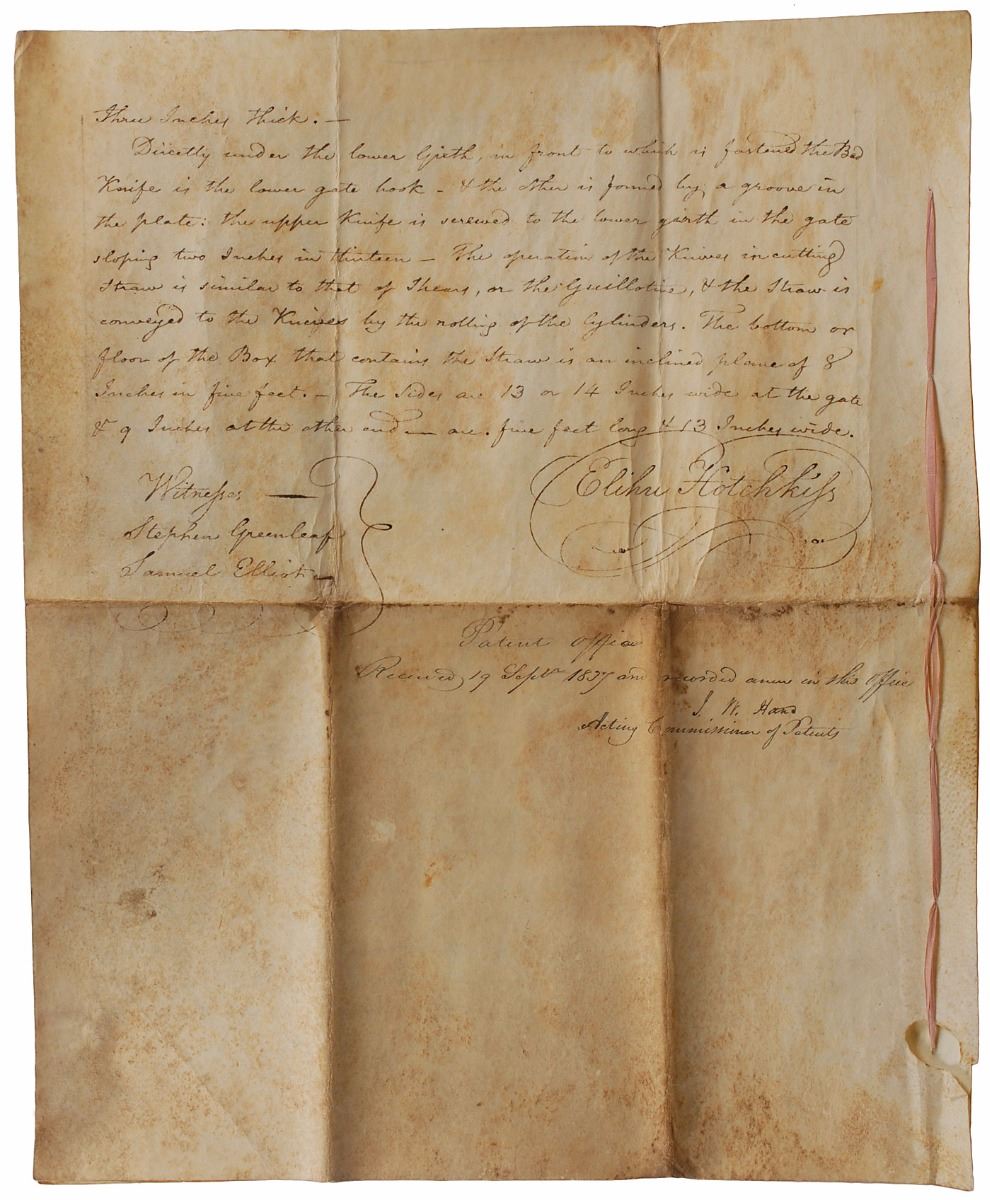 three Inches thick. —
Directly under the lower Girth, in front to which is fastened the Bed
Knife is the lower gate hook - & the other is formed by a groove in
the plate: the upper Knife is screwed to the lower girth in the gate
sloping two Inches in thirteen — The operation of the Knives in cutting
Straw is similar to that of Shears, or the Guillotine, & the Straw is
conveyed to the Knives by the rolling of the Cylinders. The bottom or
floor of the Box that contains the Straw is an inclined plane of 8
Inches in five feet. — The Sides are 13 or 14 Inches wide at the gate
& 9 Inches at the other end — are five feet long & 13 Inches wide.
Elihu Hotchkiss
Witnesses —
Stephen Greenleaf
Samuel Elliot
Patent Office
Received 19 Sept 1837 and recorded anew in this Office
J. W. Hand
Acting Commissioner of Patents